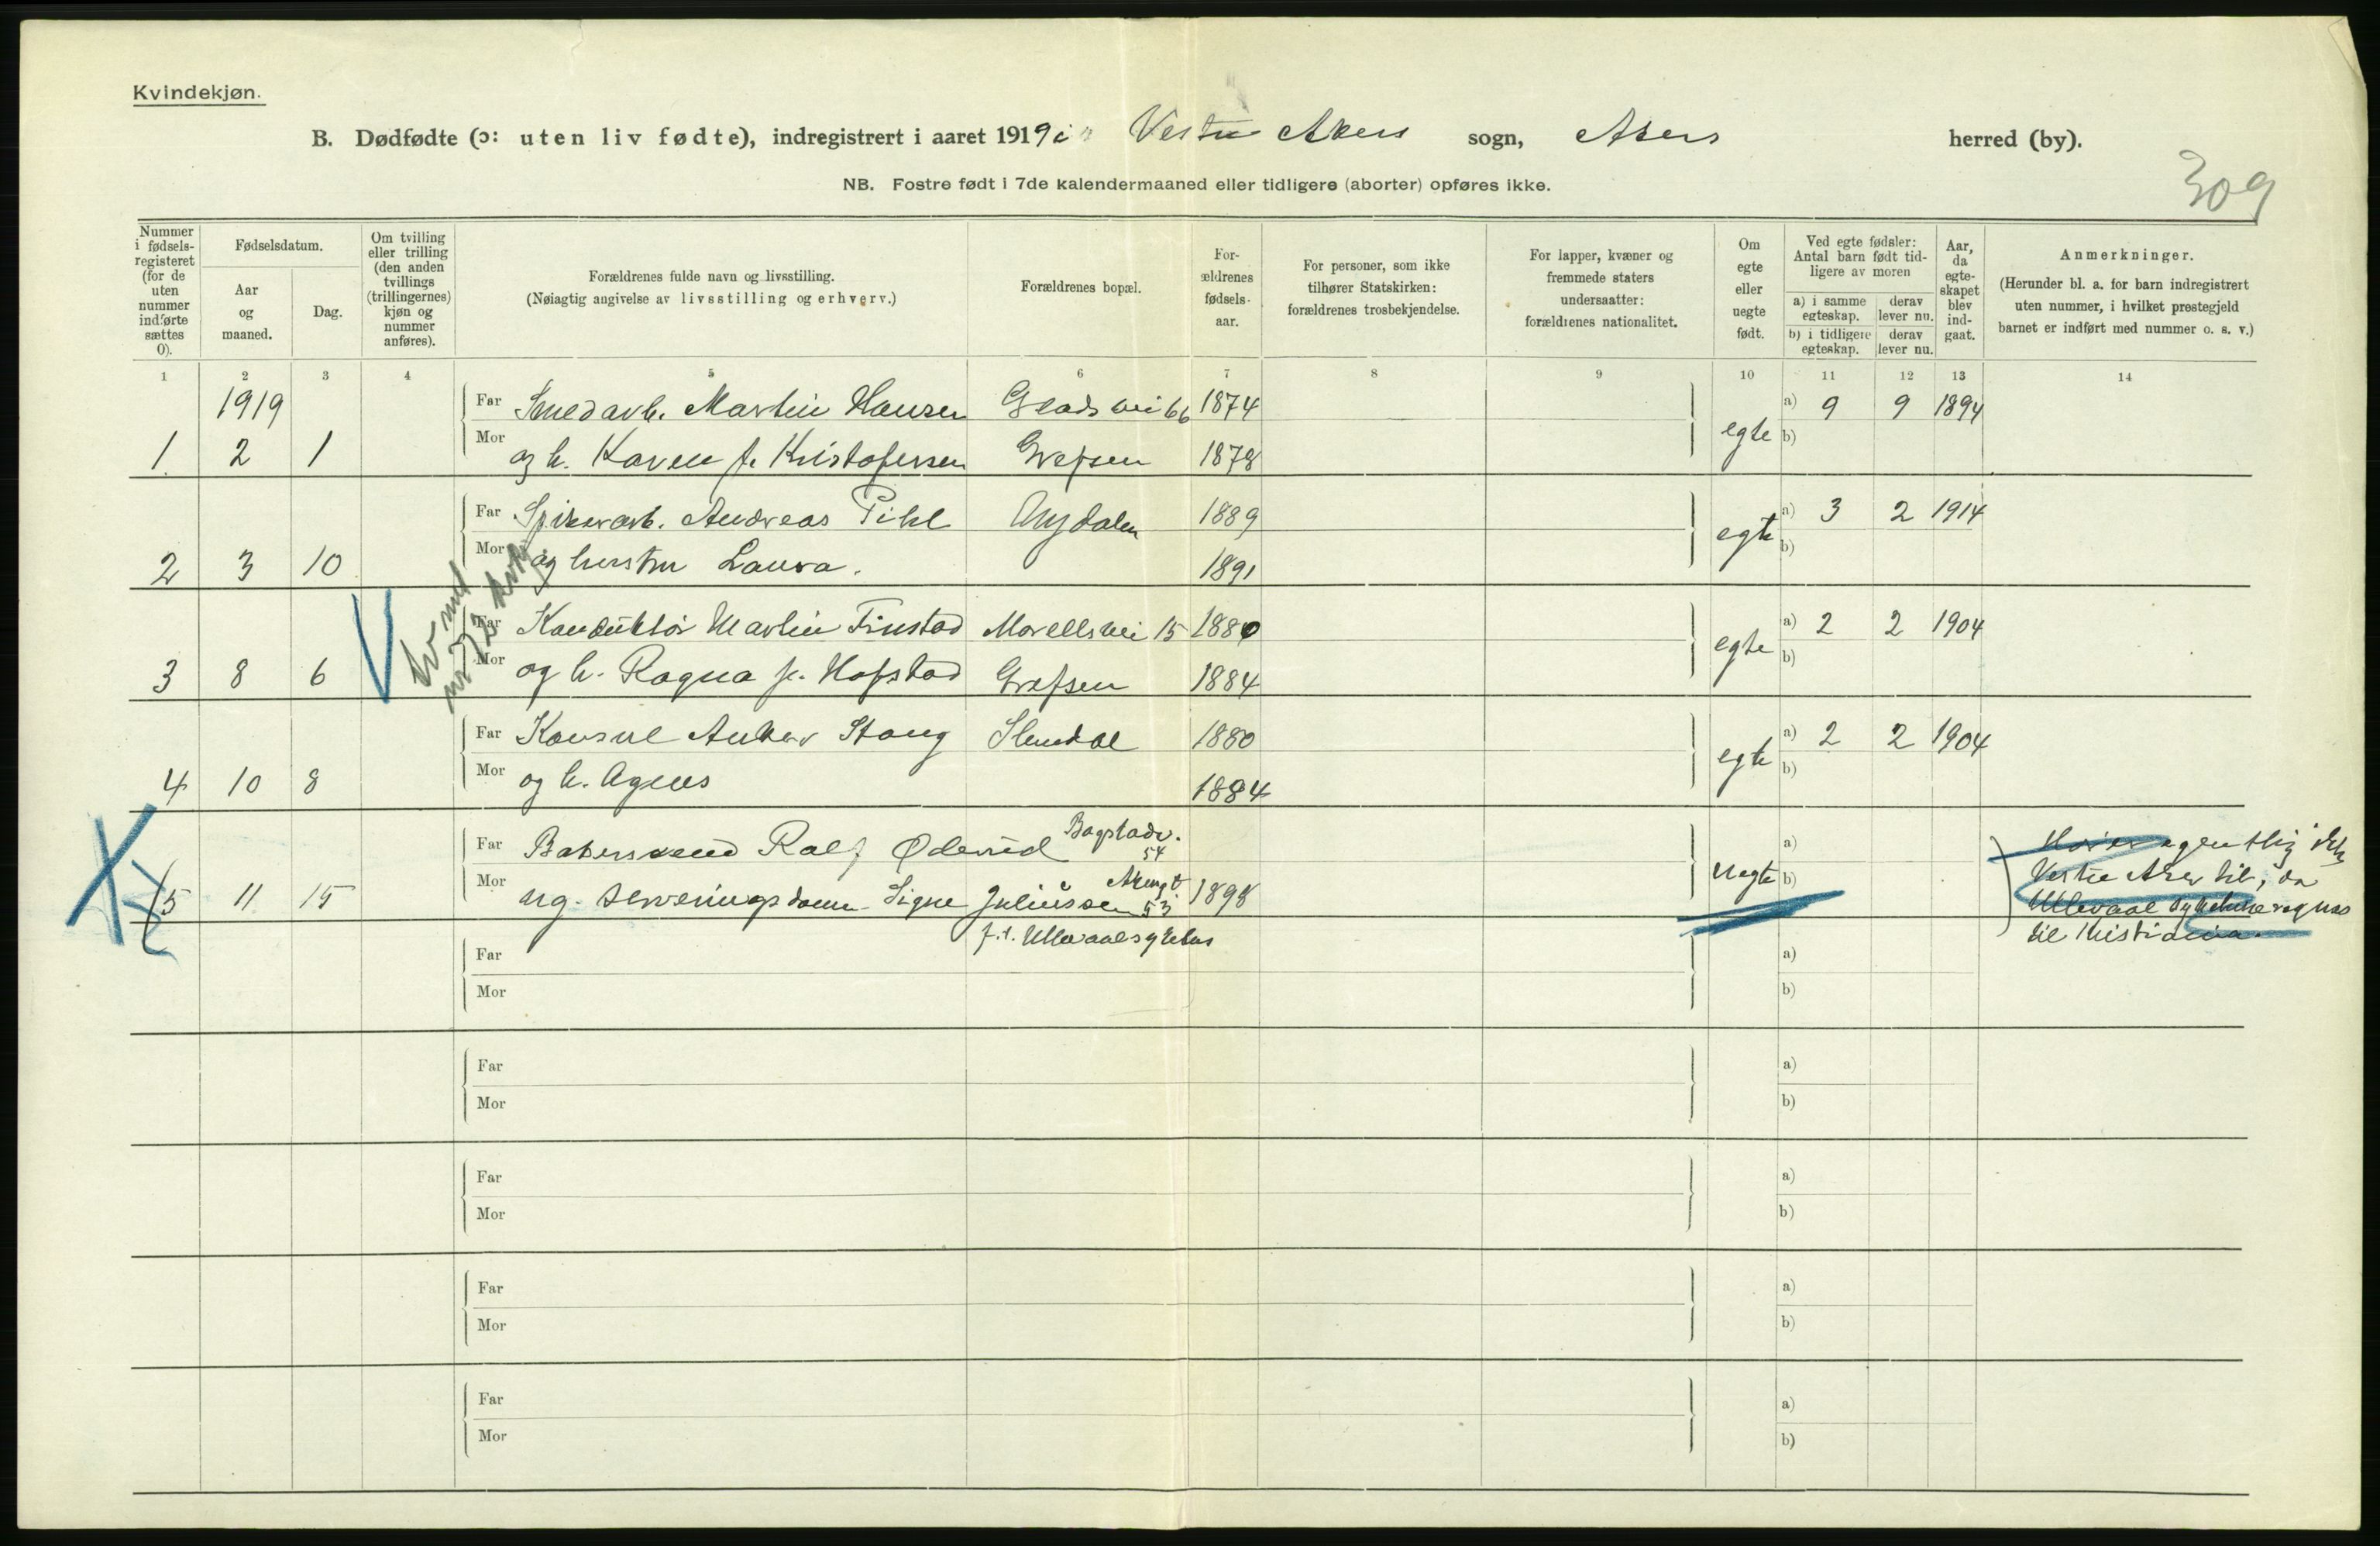 Kvindekjøn.
B. Dødfødte (ɔ: uten liv fødte), indregistrert i aaret 1919 i Vestre Akers sogn, Akers herred (by).
NB. Fostre født i 7de kalendermaaned eller tidligere (aborter) opføres ikke.
309
Nummer i fødselsregisteret (for de uten nummer indførte sættes 0).
Fødselsdatum.
Aar og maaned.
Dag.
Om tvilling eller trilling (den anden tvillings (trillingernes) kjøn og nummer anføres).
Forældrenes fulde navn og livsstilling.
(Nøiagtig angivelse av livsstilling og erhverv.)
Forældrenes bopæl.
Forældrenes fødselsaar.
For personer, som ikke tilhører Statskirken: forældrenes trosbekjendelse.
For lapper, kvæner og fremmede staters undersaatter: forældrenes nationalitet.
Om egte eller uegte født.
Ved egte fødsler: Antal barn født tidligere av moren
a) i samme egteskap. derav lever nu.
b) i tidligere egteskap. derav lever nu.
Aar, da egteskapet blev indgaat.
Anmerkninger.
(Herunder bl. a. for barn indregistrert uten nummer, i hvilket prestegjeld barnet er indført med nummer o. s. v.)
1 2 3 4 5 6 7 8 9 10 11 12 13 14
1919 Far Smedarb. Martin Hansen Gladsvei 66 1874 a) 9 9 1894
1 2 1 Mor og h. Karen f. Kristofersen Grefsen 1878 egte b)
Far Spikerarb. Andreas Pihl Nydalen 1889 a) 3 2 1914
2 3 10 Mor og hustru Laura. 1891 egte b)
Far Konduktör Martin Finstad Morellsvei 15 1880 a) 2 2 1904
3 8 6 Mor og h. Ragna f. Hofstad Grefsen 1884 egte b)
Far Konsul Anker Stang Slemdal 1880 a) 2 2 1904
4 10 8 Mor og h. Agnes 1884 egte b)
Far Bakersvend Ralf Ødemed Bogstadv. 54 a)
5 11 15 Mor ug. serveringsdame Signe Juliussen Akersgt. 53 1898 uegte b)
f.t. Ullevaal sykehus
Hører egentlig ikke
Vestre Aker til, da
Ullevaal Sykehus regnes
til Kristiania.
Far a)
Mor b)
Far a)
Mor b)
Far a)
Mor b)
Far a)
Mor b)
Far a)
Mor b)